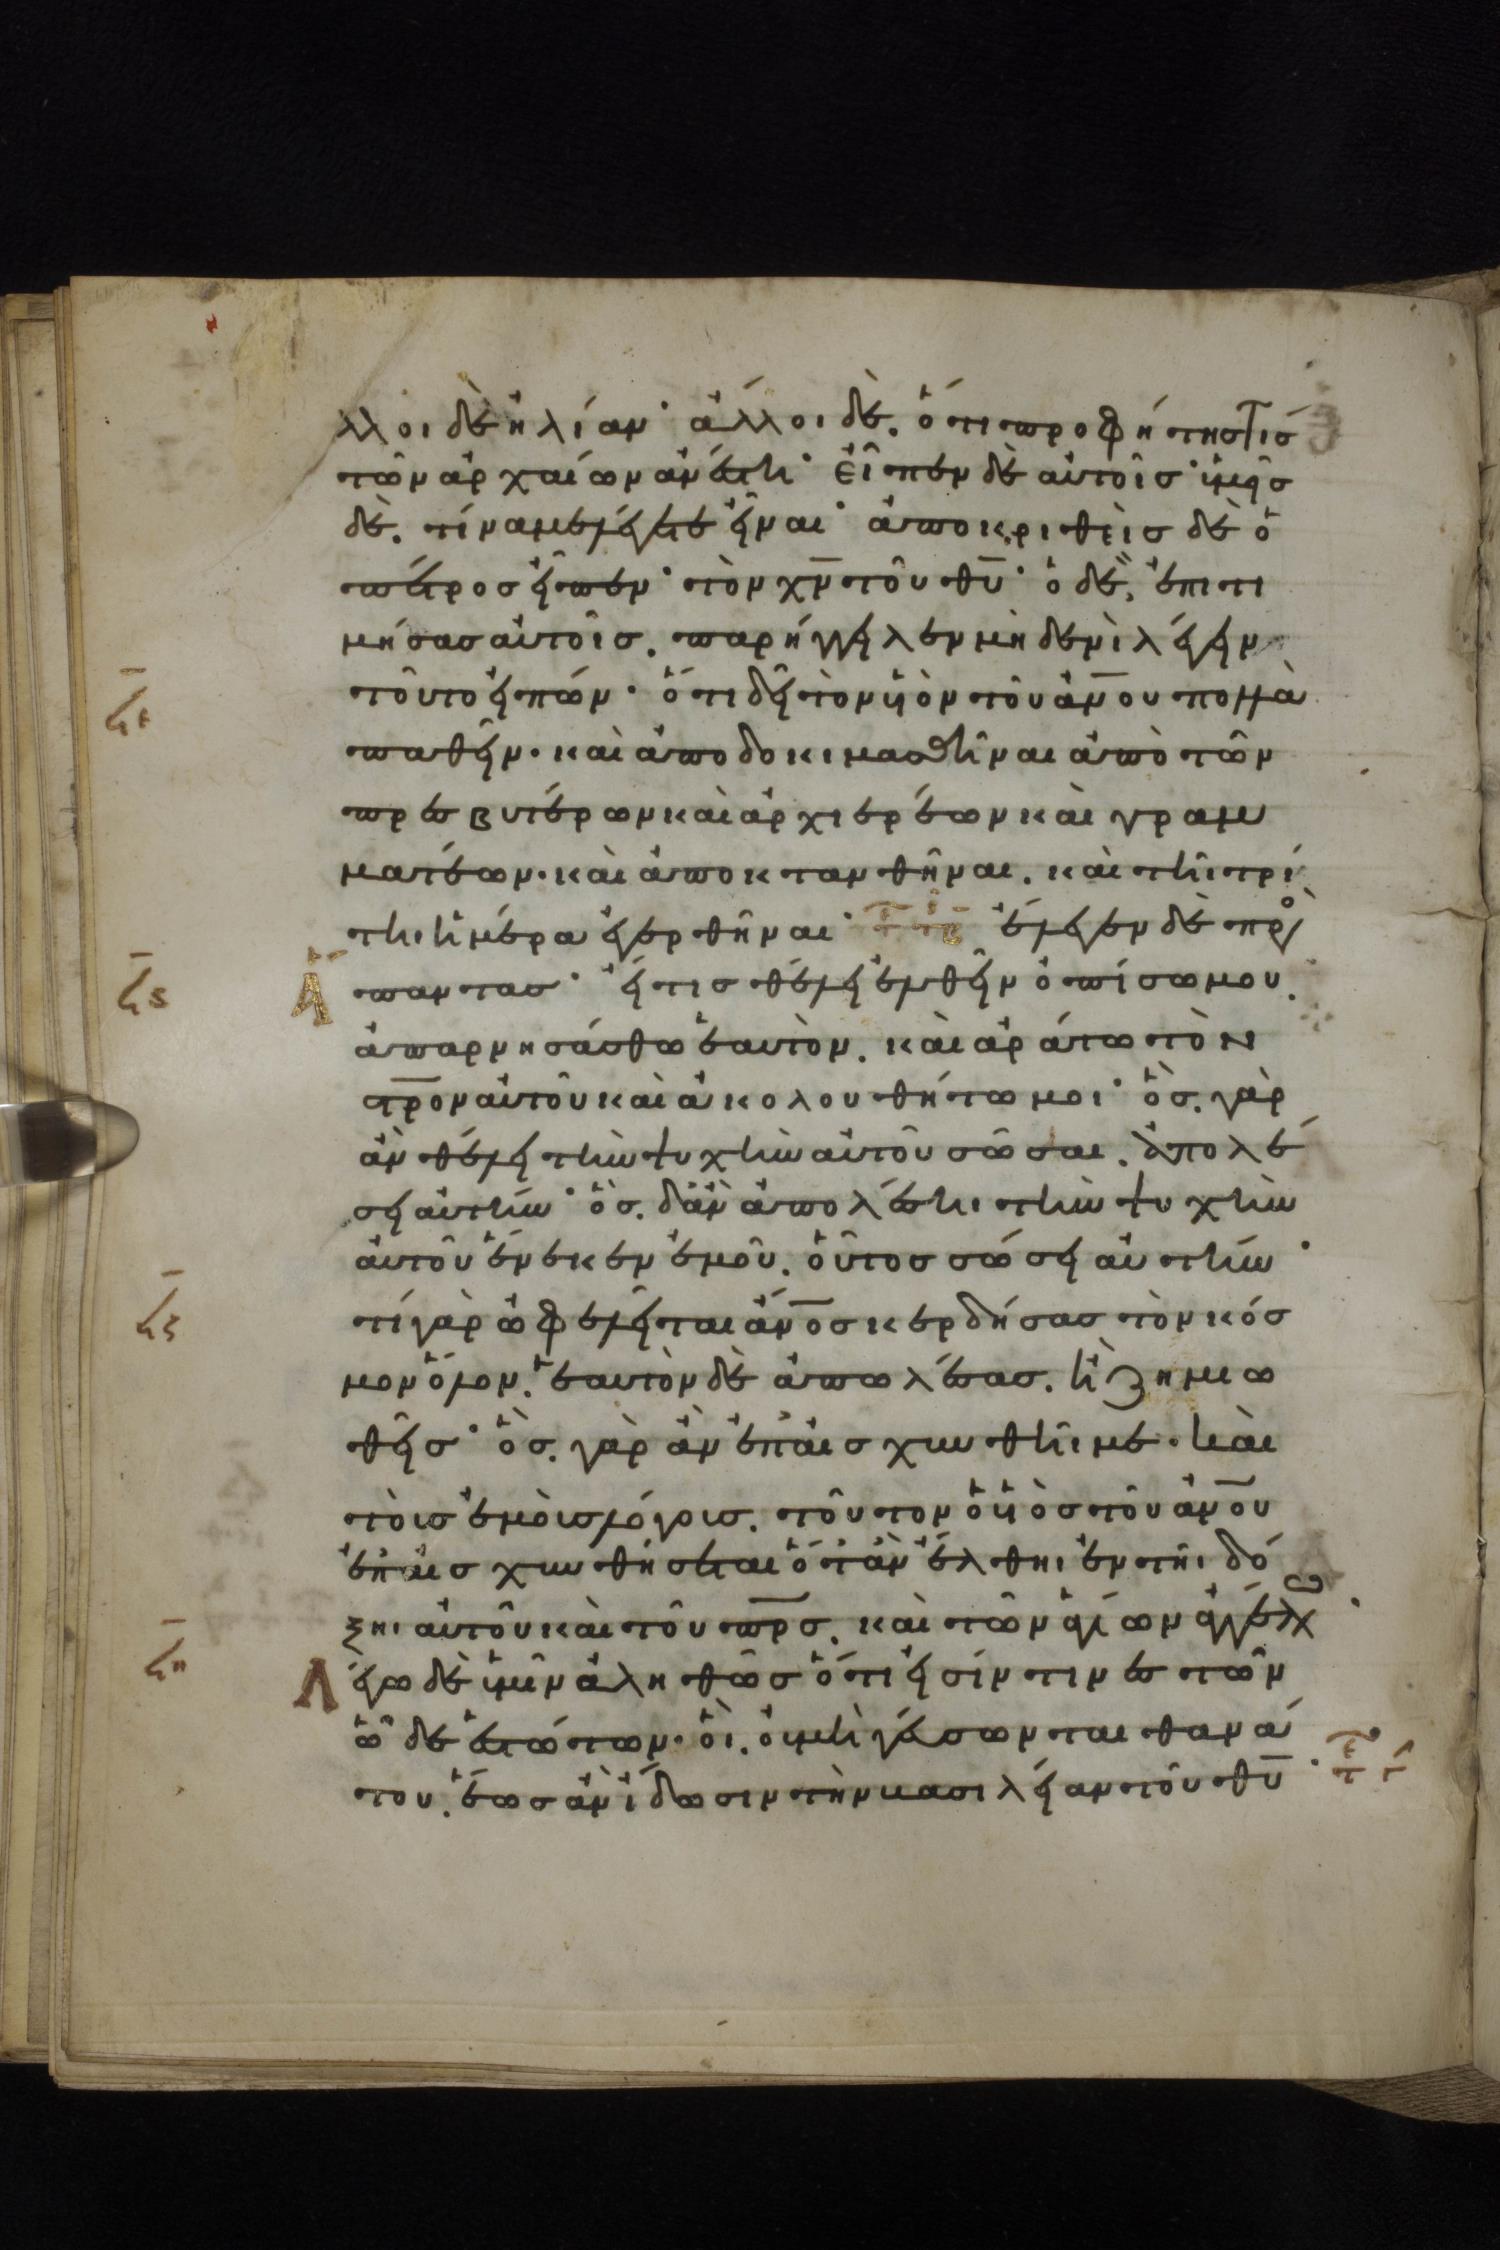 λλοι δὲ ἠλίαν· ἄλλοι δὲ. ὅτι προφήτης τίσ
τῶν ἀρχαίων ἀνέστη· εἶπεν δὲ αὐτοῖσ· ὑμεῖσ
δὲ. τίνα με λέγετε εἶναι· ἀποκριθεὶσ δὲ ὁ
πέτροσ εἶπεν· τὸν χ̅ν̅ τοῦ θ̅υ̅· ὁ δὲ, ἐπιτι
μήσασ αὐτοῖσ. παρήγγειλεν μηδενὶ λέγειν
ϛ̅ε
τοῦτο εἰπών· ὅτι δεῖ τὸν υἱὸν τοῦ α̅ν̅ου πολλὰ
παθεῖν· καὶ ἀποδοκιμασθῆναι ἀπὸ τῶν
πρεσβυτέρων καὶ ἀρχιερέων καὶ γραμ
ματέων· καὶ ἀποκτανθῆναι. καὶ τῆι τρί
τηι ἡμέρα ἐγερθῆναι· ἔλεγεν δὲ πρὸ
ϛ̅ϛ
παντασ· εἴ τισ θέλει ἐλθεῖν ὀπίσω μου.
ἀπαρνησάσθω ἑαυτὸν. καὶ ἀράτω τὸν
σ̅τ̅ρ̅ον αὐτοῦ καὶ ἀκολουθήτω μοι· ὅσ. γὰρ
ἀν θέλει τὴν ψυχὴν αὐτοῦ σῶσαι. ἀπολέ
σει αὐτήν· ὅσ. δἂν ἀπολέσηι τὴν ψυχὴν
αὐτοῦ ἕνεκεν ἐμοῦ. οὗτοσ σώσει αὐτήν·
ϛ̅ζ
τί γὰρ ὠφελεῖται α̅ν̅οσ κερδήσασ τὸν κόσ
μον ὅλον. ἑαυτὸν δὲ ἀπωλέσασ. ἢ ζημιω
θεῖσ· ὅσ. γὰρ ἂν ἐπαισχυνθῆι με· καὶ
τοὺσ ἐμοὺσ λόγουσ. τοῦτον ὁ υἱὸσ τοῦ α̅ν̅ου
ἐπαισχυνθήσεται ὅτ' ἂν ἔλθηι ἐν τῆι δό
ξηι αὐτοῦ καὶ τοῦ π̅ρ̅σ. καὶ τῶν ἁγίων ἀγγέλων·
ϛ̅η
λέγω δὲ ὑμῖν ἀληθῶσ ὅτι εἰσίν τινεσ τῶν
ὧδε ἑστώτων· οἳ. οὐ μὴ γεύσωνται θανά
του. ἕωσ ἂν ἴδωσιν τὴν βασιλείαν τοῦ θ̅υ̅·